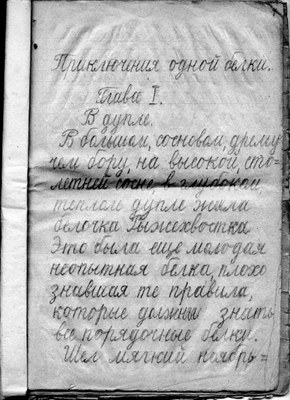 Приключения одной белки.
Глава I.
В дупле.
В большом, сосновом, дрему
чем бору, на высокой, сто=
летней сосне в глубоком,
теплом дупле жила
белочка Рыжехвостка
Это была еще молодая
неопытная белка, плохо
знавшая те правила,
которые должны знать
все порядочные белки.
Шел мягкий ноябрь=